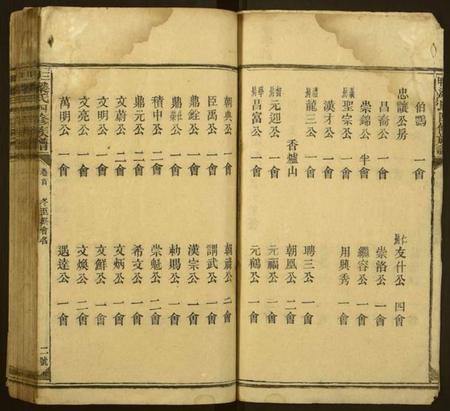 伯鸚 一會
忠讓公房
昌裔公 一會
崇錦公 半會
聖宗公 一會
漢才公 一會
龍三公 一會
香爐山
元迥公 一會
昌富公 一會
友什公 四會
崇洛公 一會
繼容公 一會
用興秀 一會
聘三公 一會
朝鳳公 二會
元福公 一會
元鵷公 一會
朝典公 一會
臣禹公 一會
鼎銓公 一會
鼎公 一會
積中公 二會
鼎元公 二會
文蔚公 二會
文明公 一會
文亮公 一會
萬明公 一會
朝福公 二會
謂武公 一會
漢宗公 一會
勅賜公 一會
崇魁公 二會
希文公 一會
文炳公 一會
文鮮公 一會
文煥公 二會
遇達公 一會
氏四修族譜 卷首 冬至經會名 二號